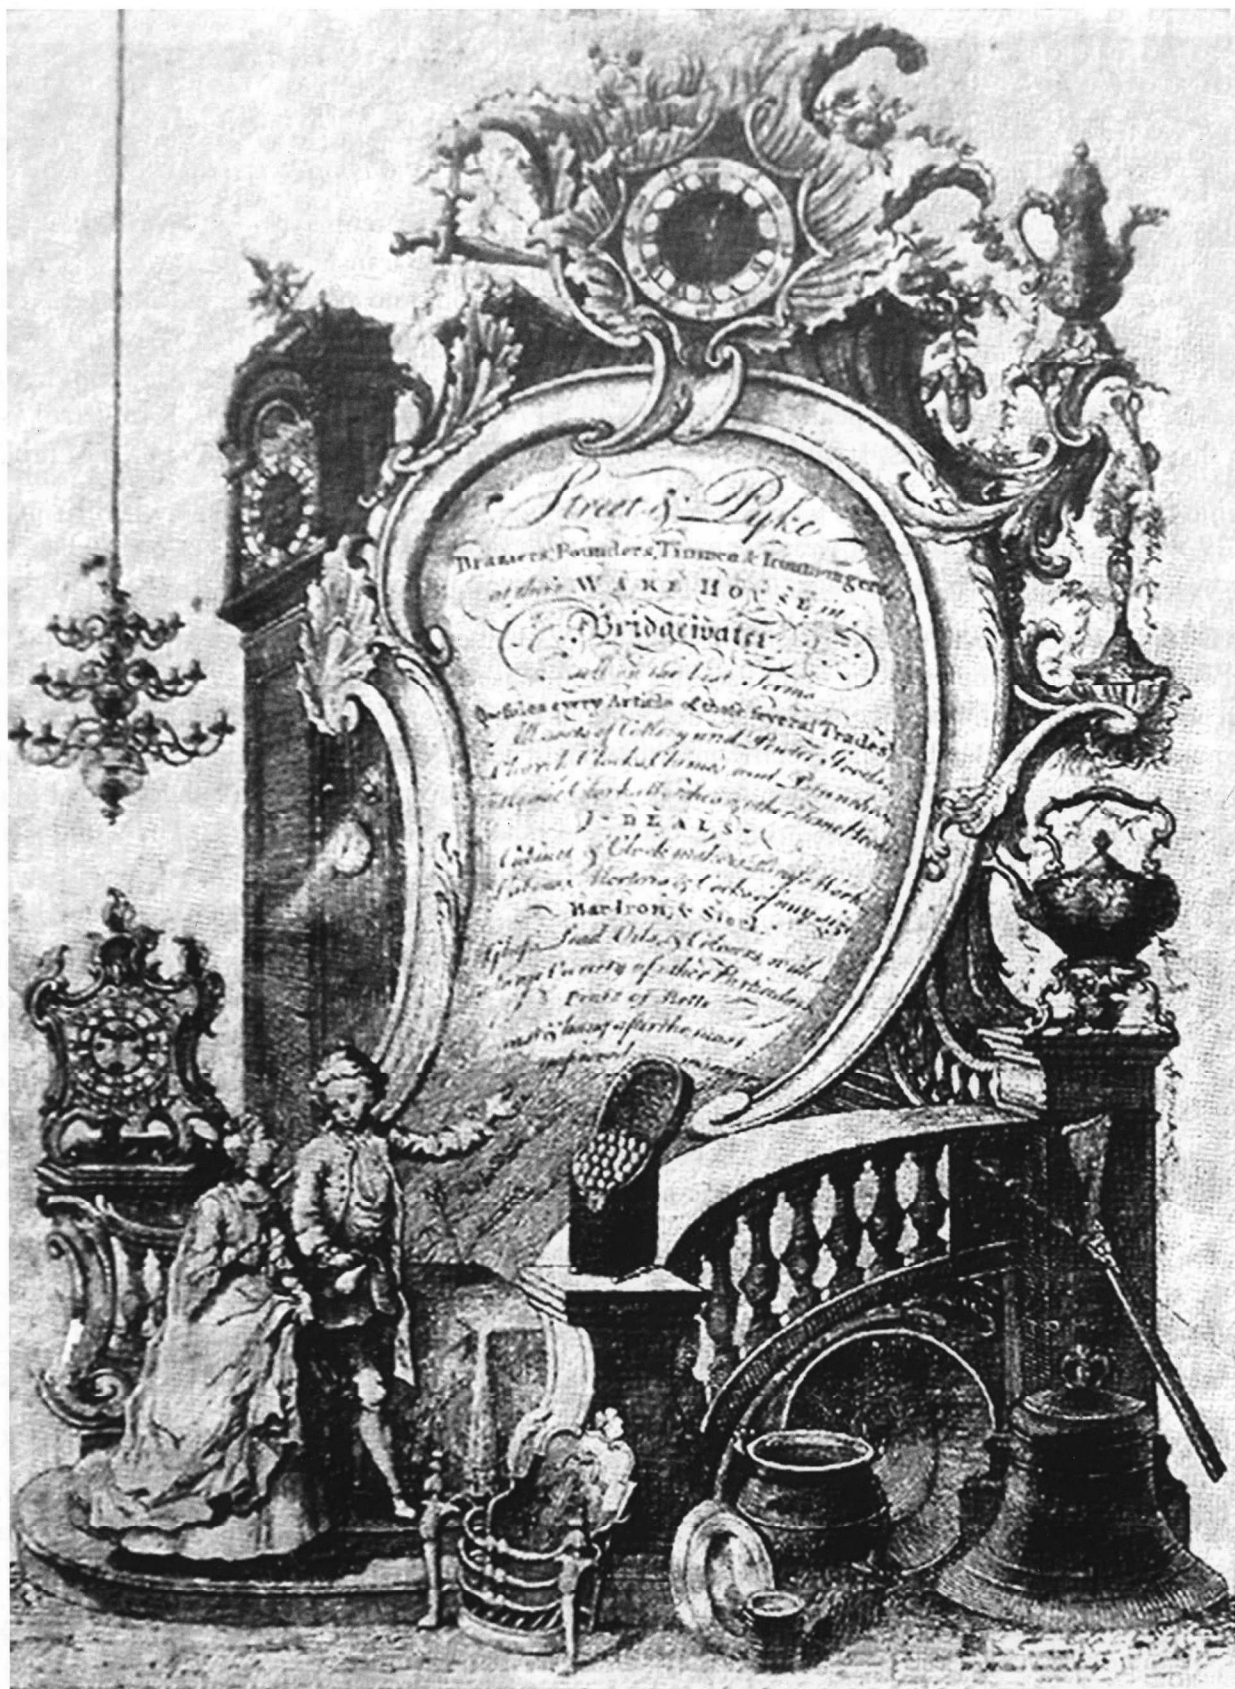 Street & Pyke
Braziers, Founders, Tinmen & Ironmongers
at their WARE HOUSE in
Bridgewater
sell on the best Terms
every Article of those several Trades
All sorts of Cutlery and Pewter Goods
Church Clocks, Chimes and
other Time Pieces
DEALS
Cabinet & Clock makers Brass Work
Mortars & Cocks of any size
Bar Iron, & Steel
Glass Lead Oils, & Colours, with
large Variety of other Particulars
Peals of Bells
cast & hung after the most